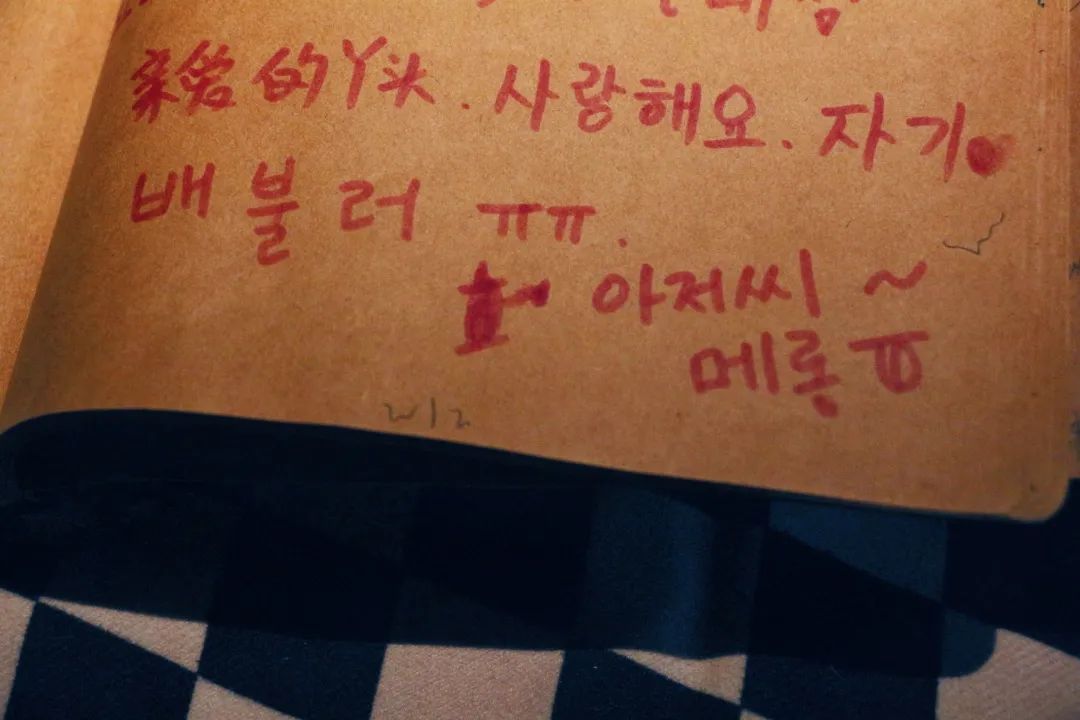 亲爱的丫头.사랑해요.자기
배불러 ㅠㅠ.
아저씨~
메롱